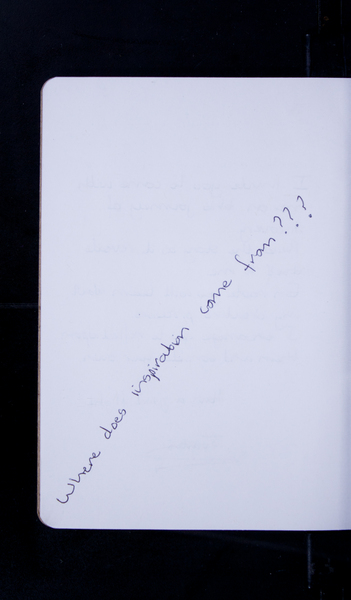 Where does inspiration come from???